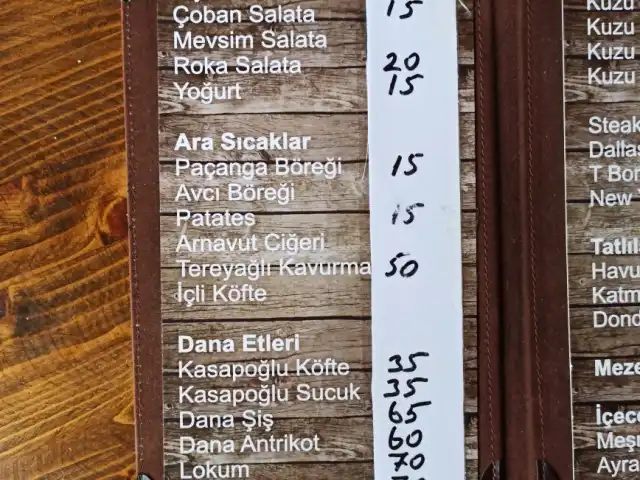 Çoban Salata 15
Mevsim Salata
Roka Salata 20
Yoğurt 15
Ara Sıcaklar
Paçanga Böreği 15
Avcı Böreği
Patates 15
Arnavut Ciğeri
Tereyağlı Kavurma 50
İçli Köfte
Dana Etleri
Kasapoğlu Köfte 35
Kasapoğlu Sucuk 35
Dana Şiş 65
Dana Antrikot 60
Lokum 70
Kuzu
Kuzu
Kuzu
Kuzu
Steak
Dallas
T Bon
New
Tatlıl
Havu
Katm
Dond
Meze
İçece
Meşr
Ayra